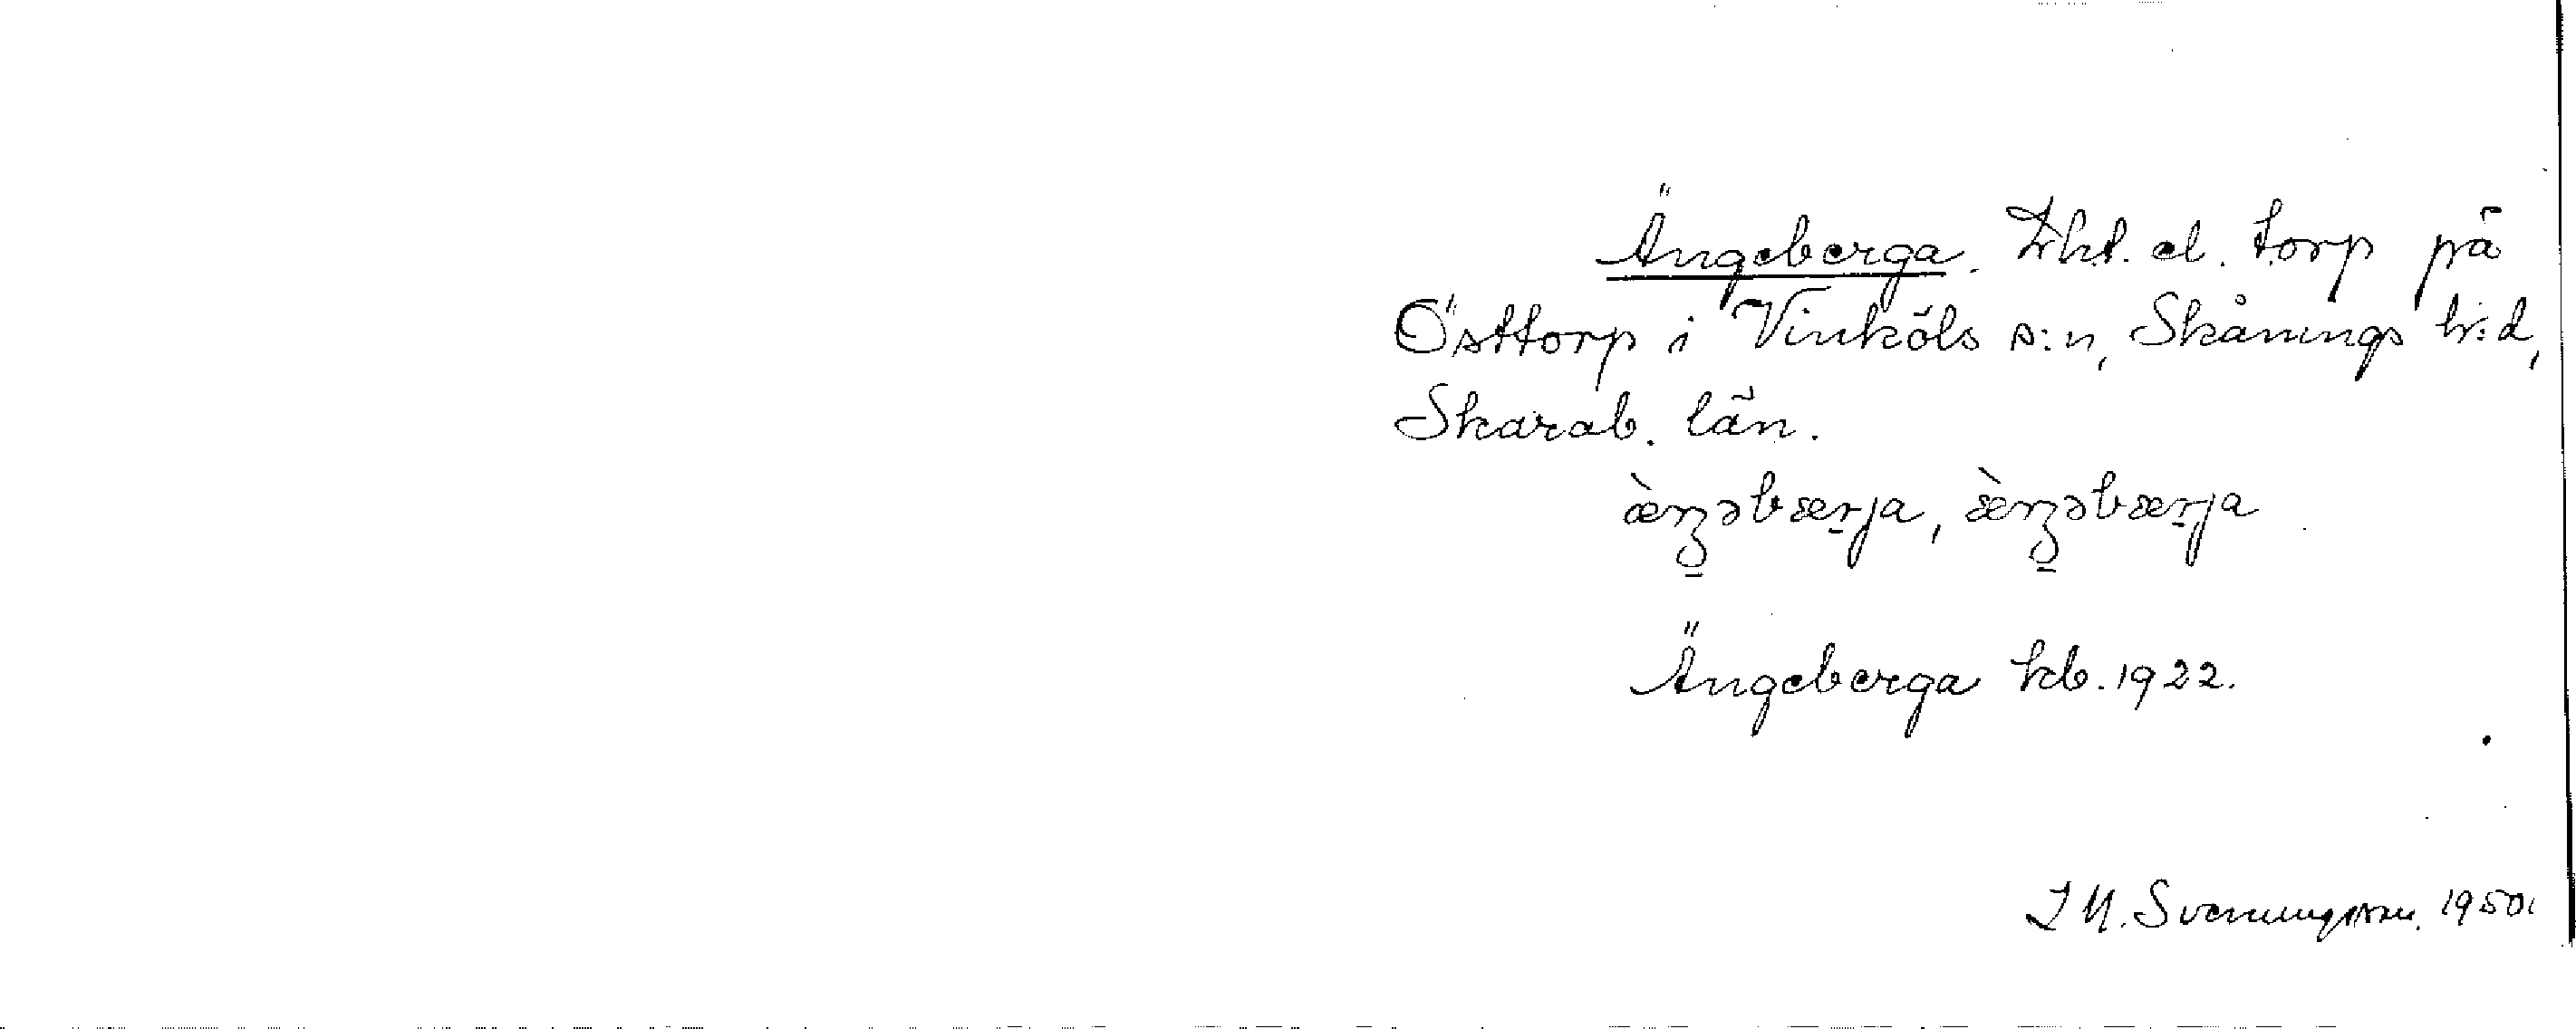 Ängeberga. Lht. el. torp på
Östtorp i Vinköls s:n, Skånings hr:d,
Skarab. län.
æ̀ŋəbærja, æ̀ŋəbærja
Ängeberga kb. 1922.
Svenungsson. 1950.